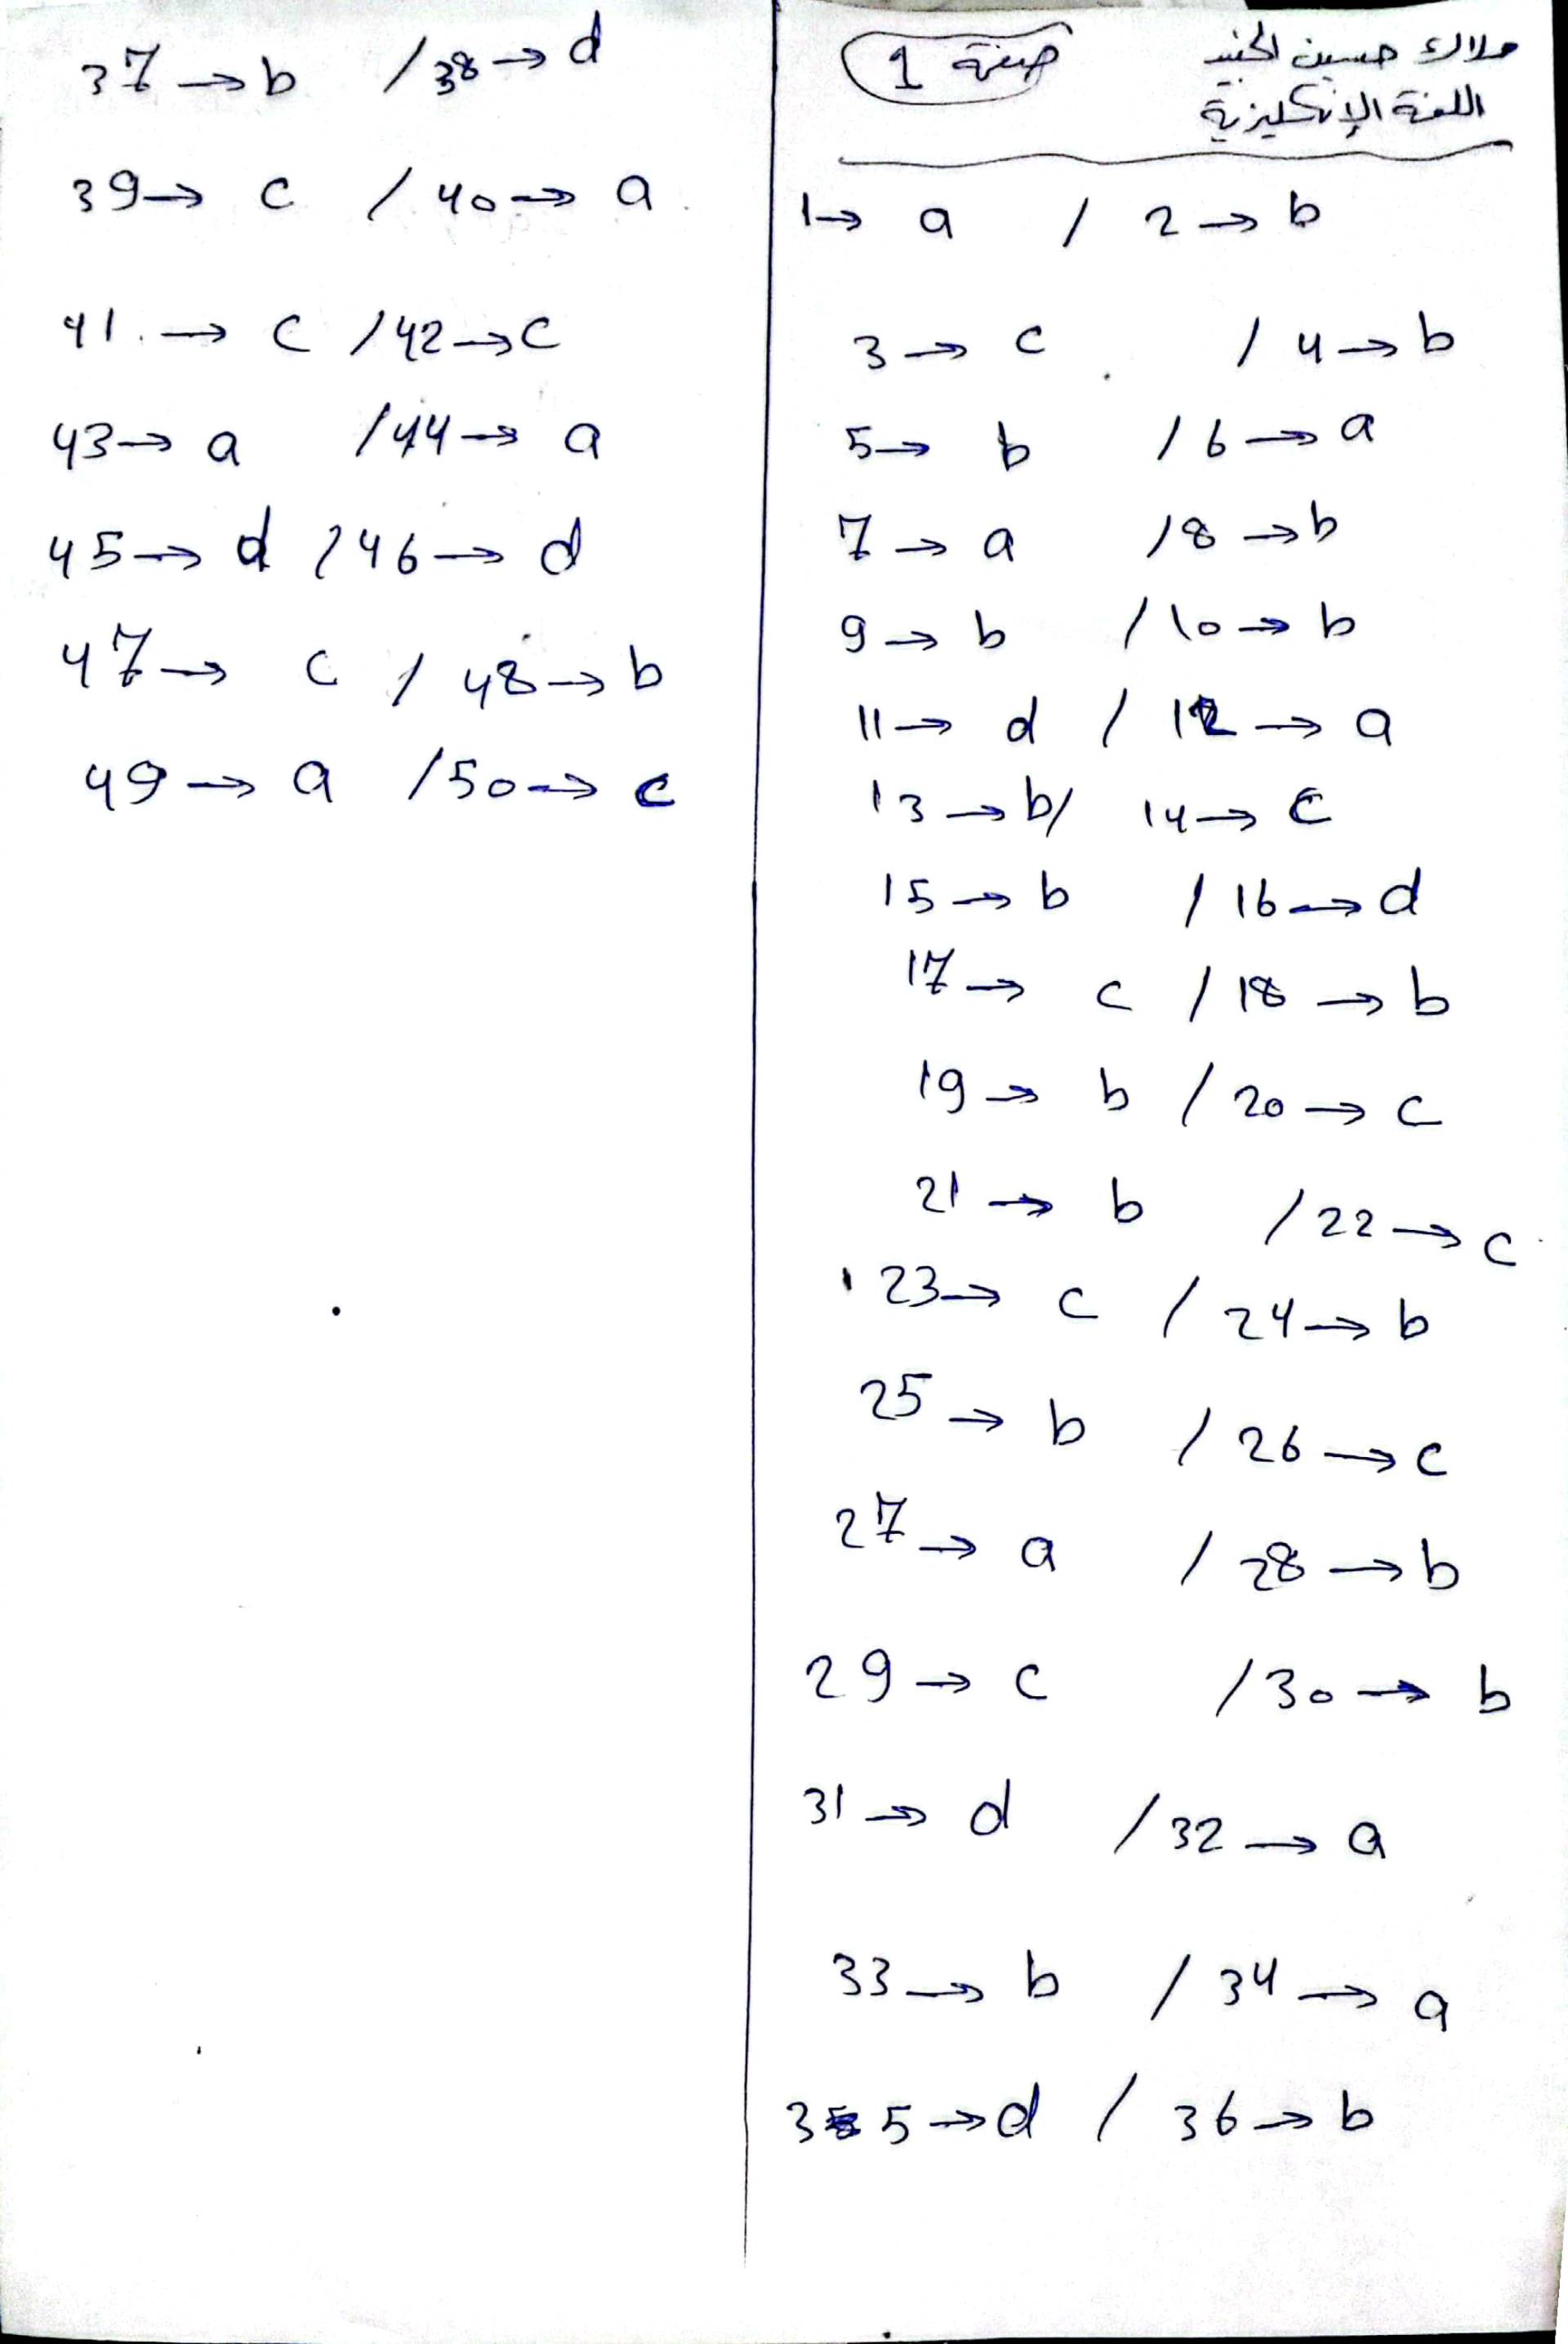 ملاك حسين الجنيد
صفحة 1
اللغة الإنكليزية
1→ a / 2→ b
3→ c / 4→ b
5→ b / 6→ a
7→ a / 8→ b
9→ b / 10→ b
11→ d / 12→ a
13→ b / 14→ c
15→ b / 16→ d
17→ c / 18→ b
19→ b / 20→ c
21→ b / 22→ c
23→ c / 24→ b
25→ b / 26→ c
27→ a / 28→ b
29→ c / 30→ b
31→ d / 32→ a
33→ b / 34→ a
35→ d / 36→ b
37→ b / 38→ d
39→ c / 40→ a
41.→ c / 42→ c
43→ a / 44→ a
45→ d / 46→ d
47→ c / 48→ b
49→ a / 50→ c